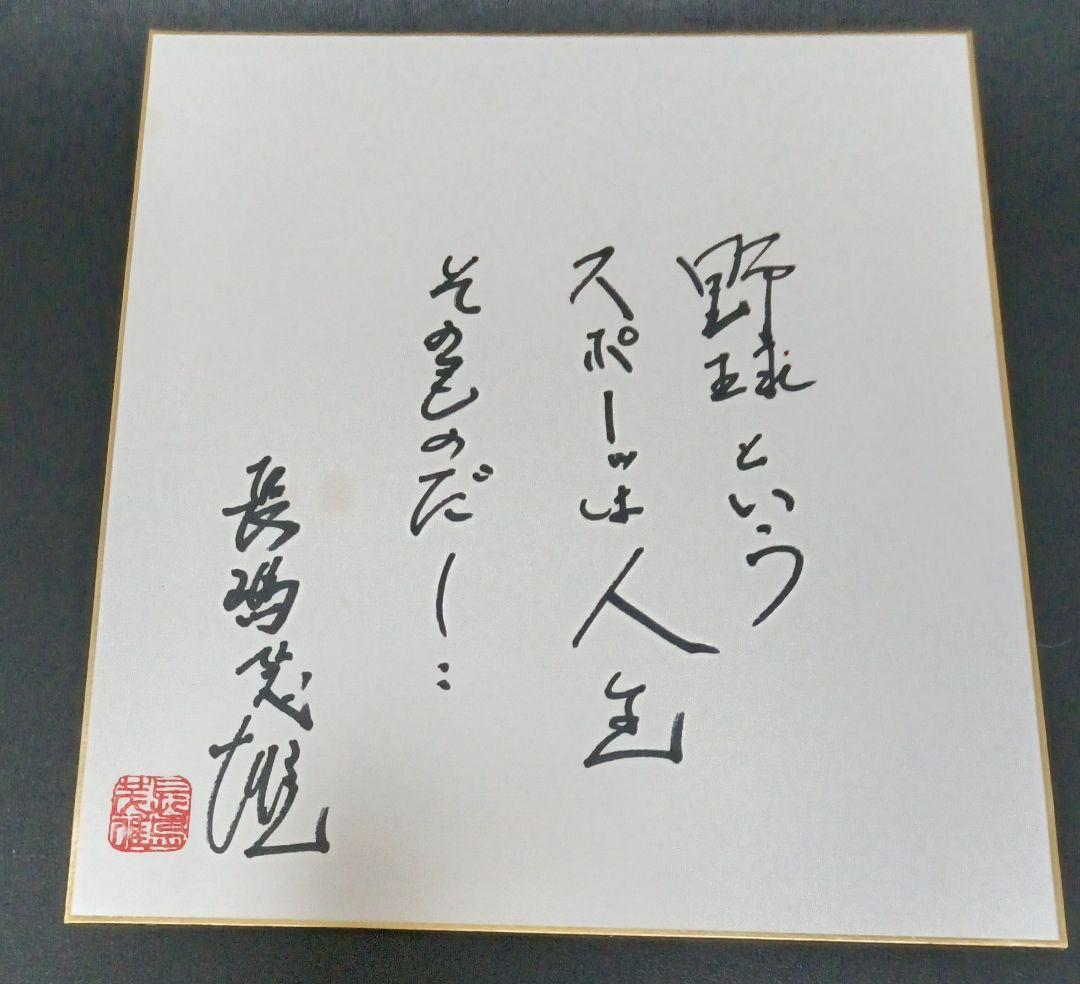 野球という
スポーツは人生
そのものだー:
長嶋茂雄
長嶋茂雄